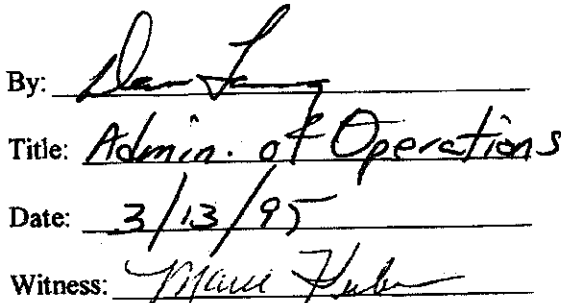 By: Dan
Title: Admin. of Operations
Date: 3/13/95
Witness: Marie